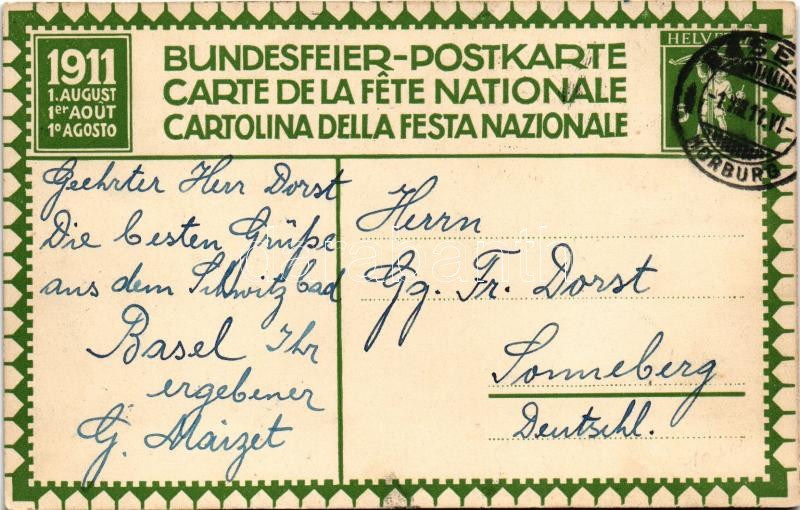 1911
1. AUGUST
1er AOÛT
1º AGOSTO
BUNDESFEIER-POSTKARTE
CARTE DE LA FÊTE NATIONALE
CARTOLINA DELLA FESTA NAZIONALE
5
HORBURG
Geehrter Herr Dorst
Die besten Grüße
aus dem Schwitzbad
Basel Ihr
ergebener
G. Maizet
Herrn
Gg. Fr. Dorst
Sonneberg
Deutschl.